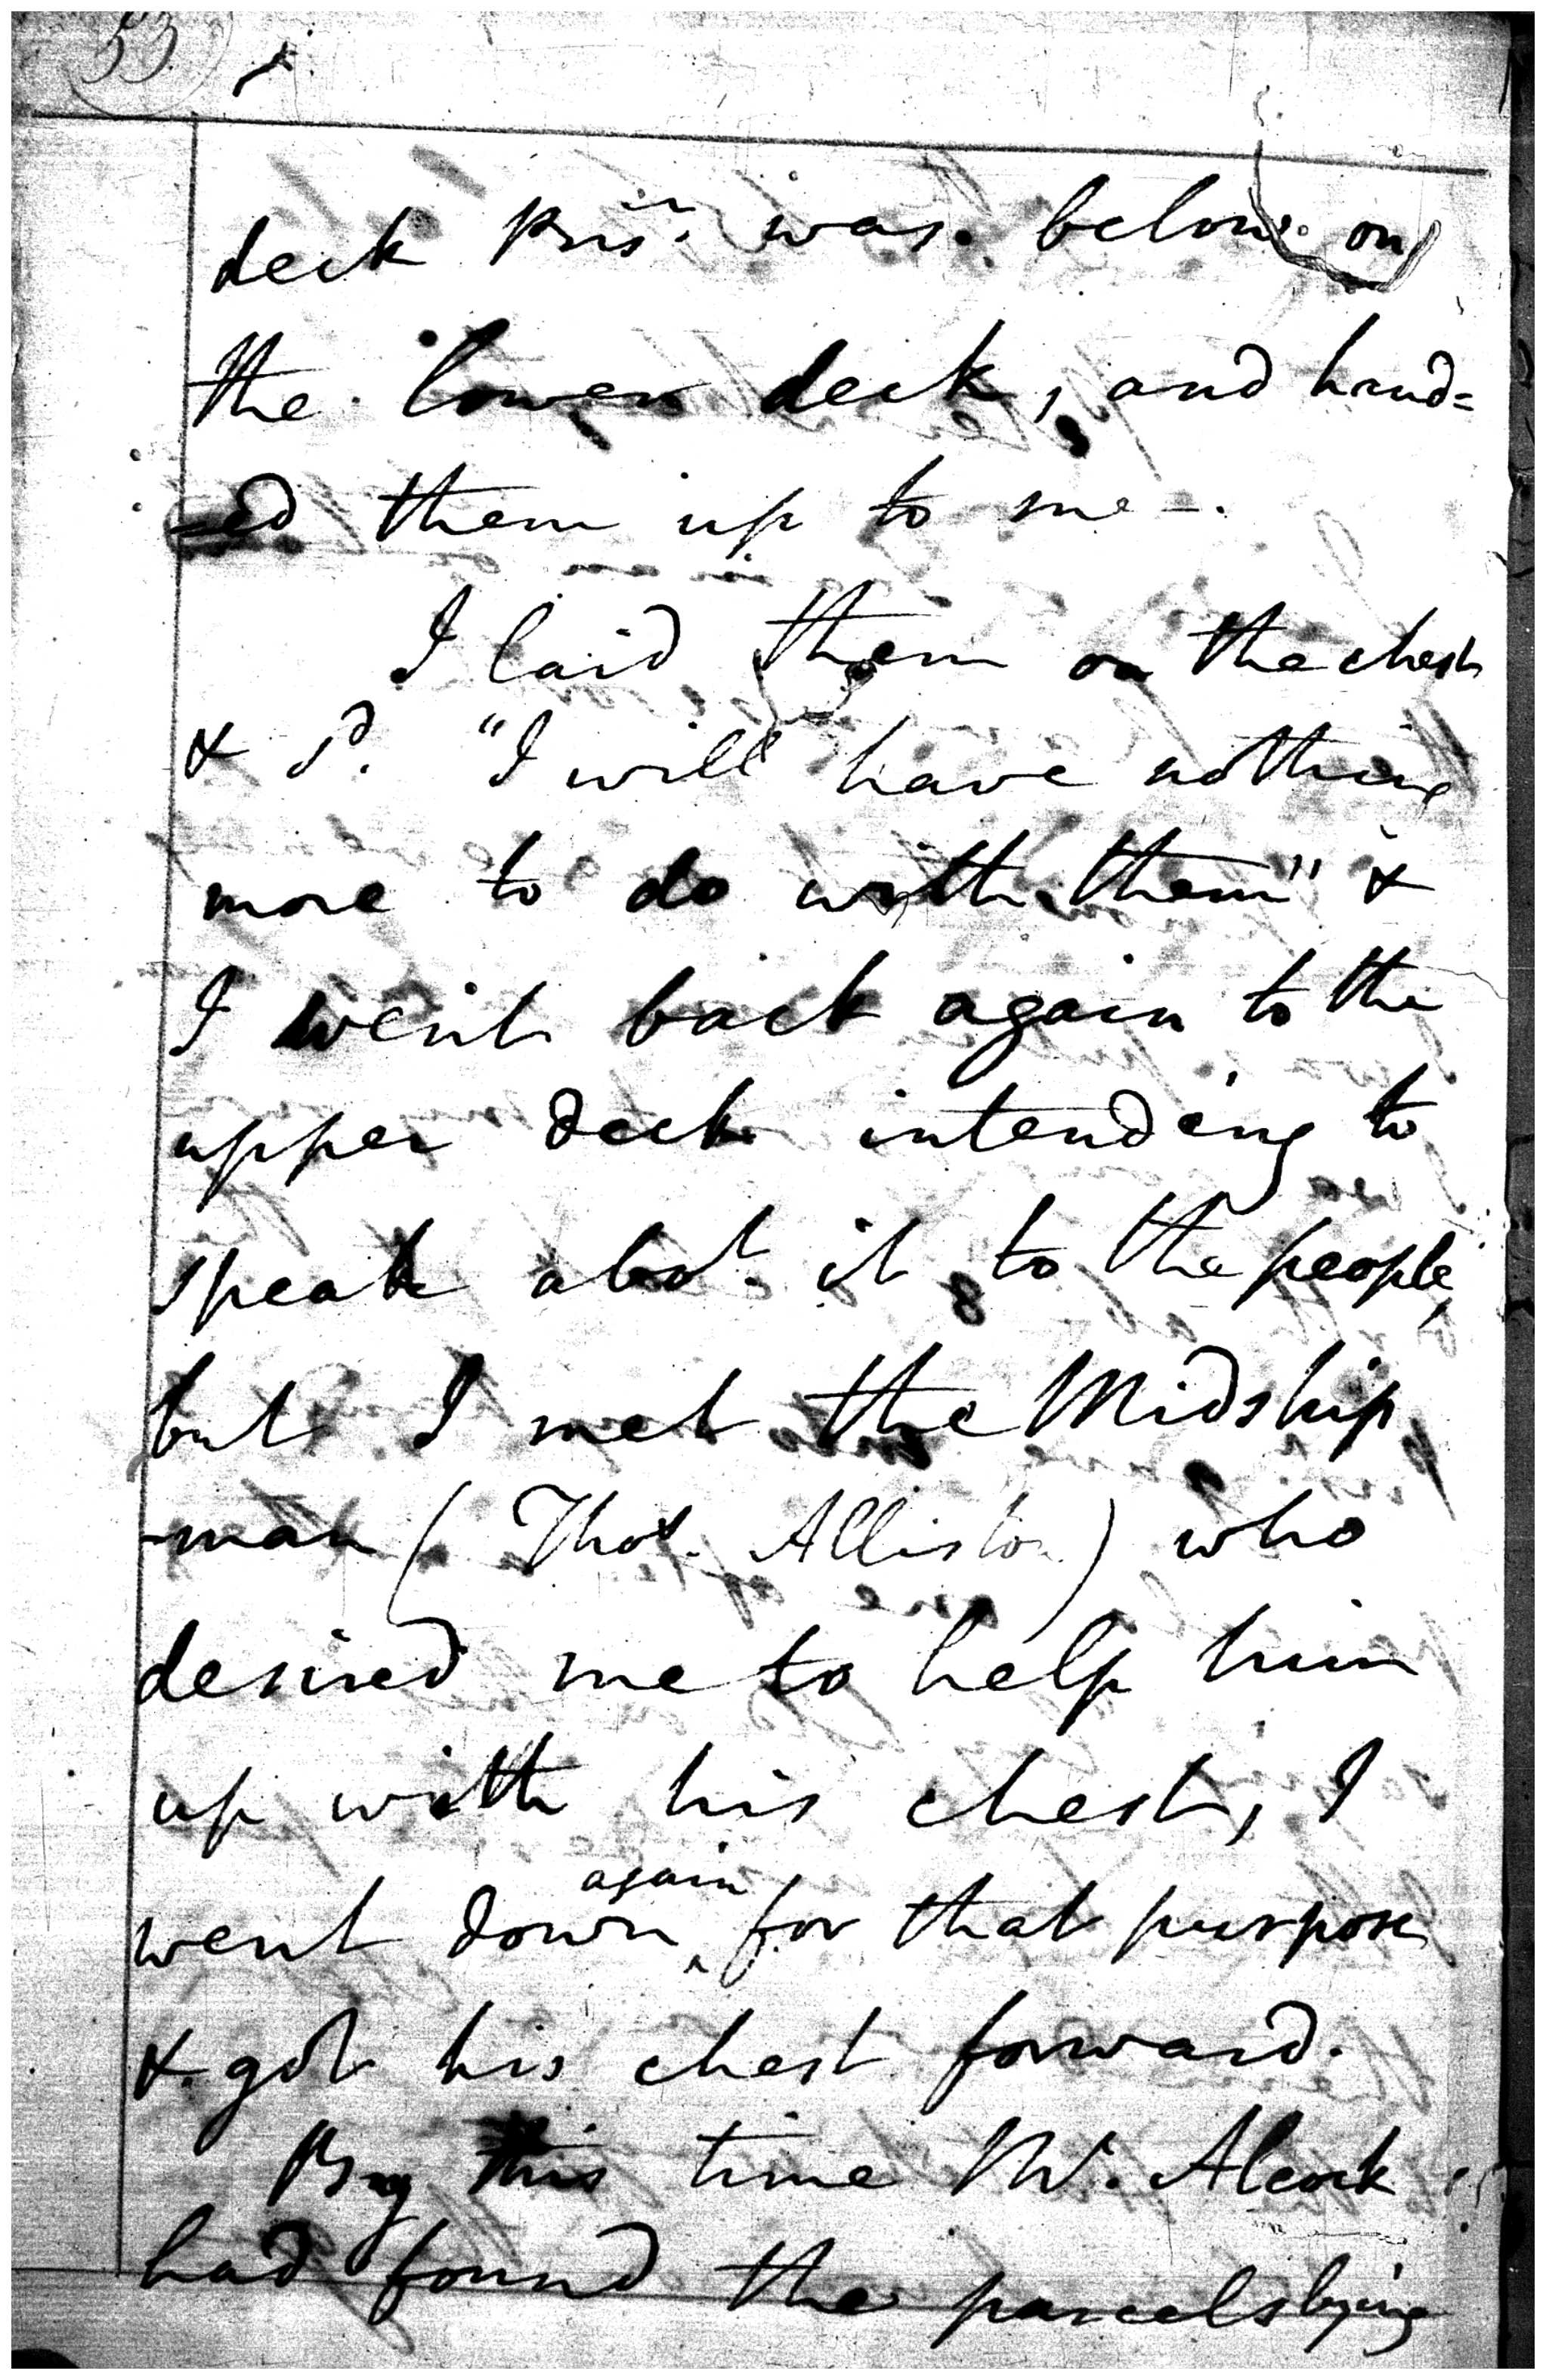 53.
deck Prisr. was. below. on
the lower deck, and hand=
=ed them up to me -.
I laid them on the chest
& sd. "I will have nothing
more to do with them" &
I went back again to the
upper deck intending to
speak abot. it to the people,
but I met the Midship
-man ( Thos. Alliston ) who
desired me to help him
up with his chest, I
went down again for that purpose
& got his chest forward.
By this time Mr. Alcock
had found the parcels lying